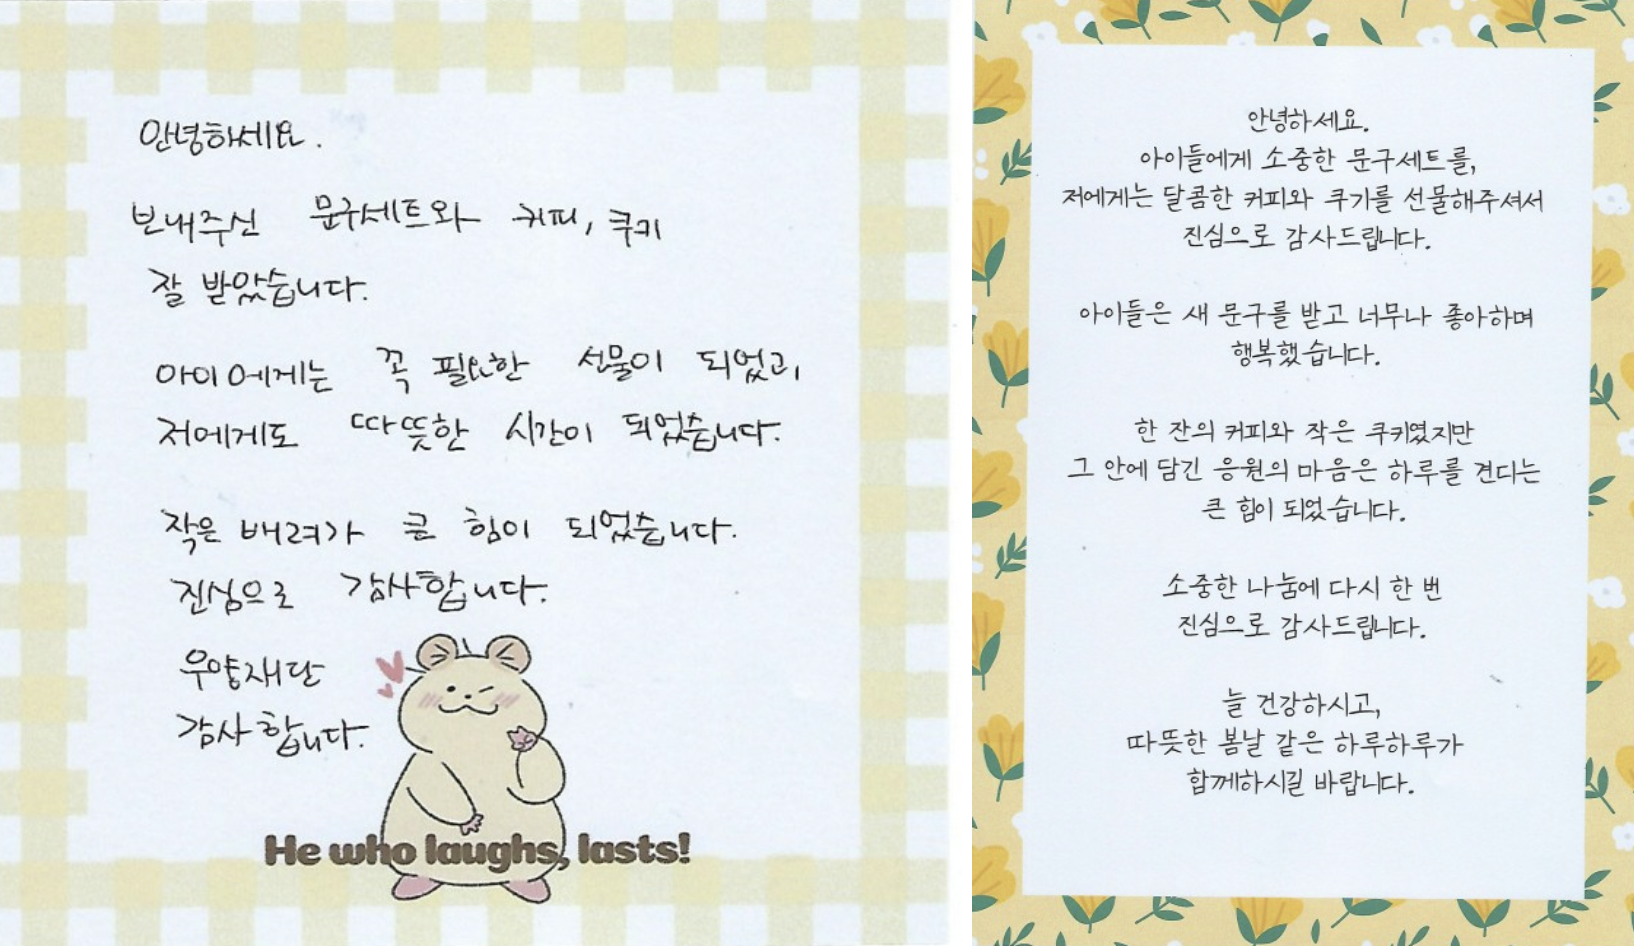 안녕하세요.
보내주신 문구세트와 커피, 쿠키
잘 받았습니다.
아이에게는 꼭 필요한 선물이 되었고,
저에게도 따뜻한 시간이 되었습니다.
작은 배려가 큰 힘이 되었습니다.
진심으로 감사합니다.
우양재단
감사합니다.
He who laughs, lasts!
안녕하세요.
아이들에게 소중한 문구세트를,
저에게는 달콤한 커피와 쿠기를 선물해주셔서
진심으로 감사드립니다.
아이들은 새 문구를 받고 너무나 좋아하며
행복했습니다.
한 잔의 커피와 작은 쿠키였지만
그 안에 담긴 응원의 마음은 하루를 견디는
큰 힘이 되었습니다.
소중한 나눔에 다시 한 번
진심으로 감사드립니다.
늘 건강하시고,
따뜻한 봄날 같은 하루하루가
함께하시길 바랍니다.